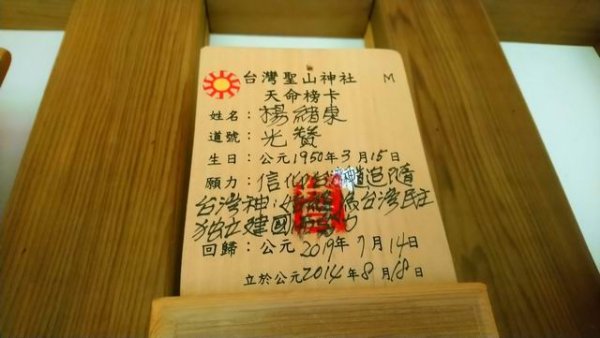 台灣聖山神社 M
天命榜卡
姓名：楊緒東
道號：光贊
生日：公元1950年3月15日
願力：信仰台灣追隨
台灣神 為台灣民主
独立建國
回歸：公元2019年7月14日
立於公元2014年8月18日